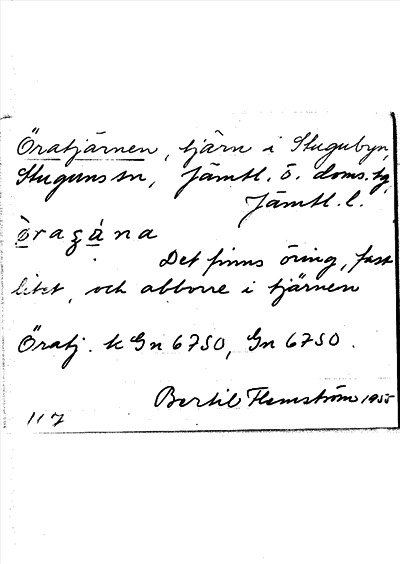 Öratjärnen, tjärn i Stugubyn,
Stuguns sn, Jämtl. ö. doms. tg,
Jämtl. l.
Det finns öring, fast
litet, och abborre i tjärnen
Öratj. k Gn 6750, Gn 6750.
Bertil Flemström 1955
117